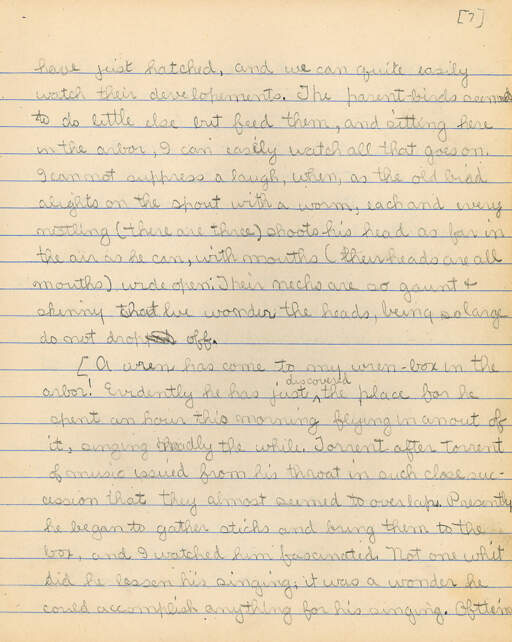 [7]
have just hatched, and we can quite easily
watch their developements. The parent-birds seemed
to do little else but feed them, and sitting here
in the arbor, I can easily watch all that goes on.
I cannot suppress a laugh, when, as the old bird
alights on the spout with a worm, each and every
nestling (there are three) shoots his head as far in
the air as he can, with mouths (their heads are all
mouths) wide open. Their necks are so gaunt &
skinny that we wonder the heads, being so large
do not drop off.
[A wren has come to my wren-box in the
arbor! Evidently he has just discovered the place for he
spent an hour this morning flying in an out of
it, singing madly the while. Torrent after torrent
of music issued from his throat in such close suc-
cession that they almost seemed to overlap. Presently
he began to gather sticks and bring them to the
box, and I watched him fascinated. Not one whit
did he lessen his singing; it was a wonder he
could accomplish anything for his singing. Oftten